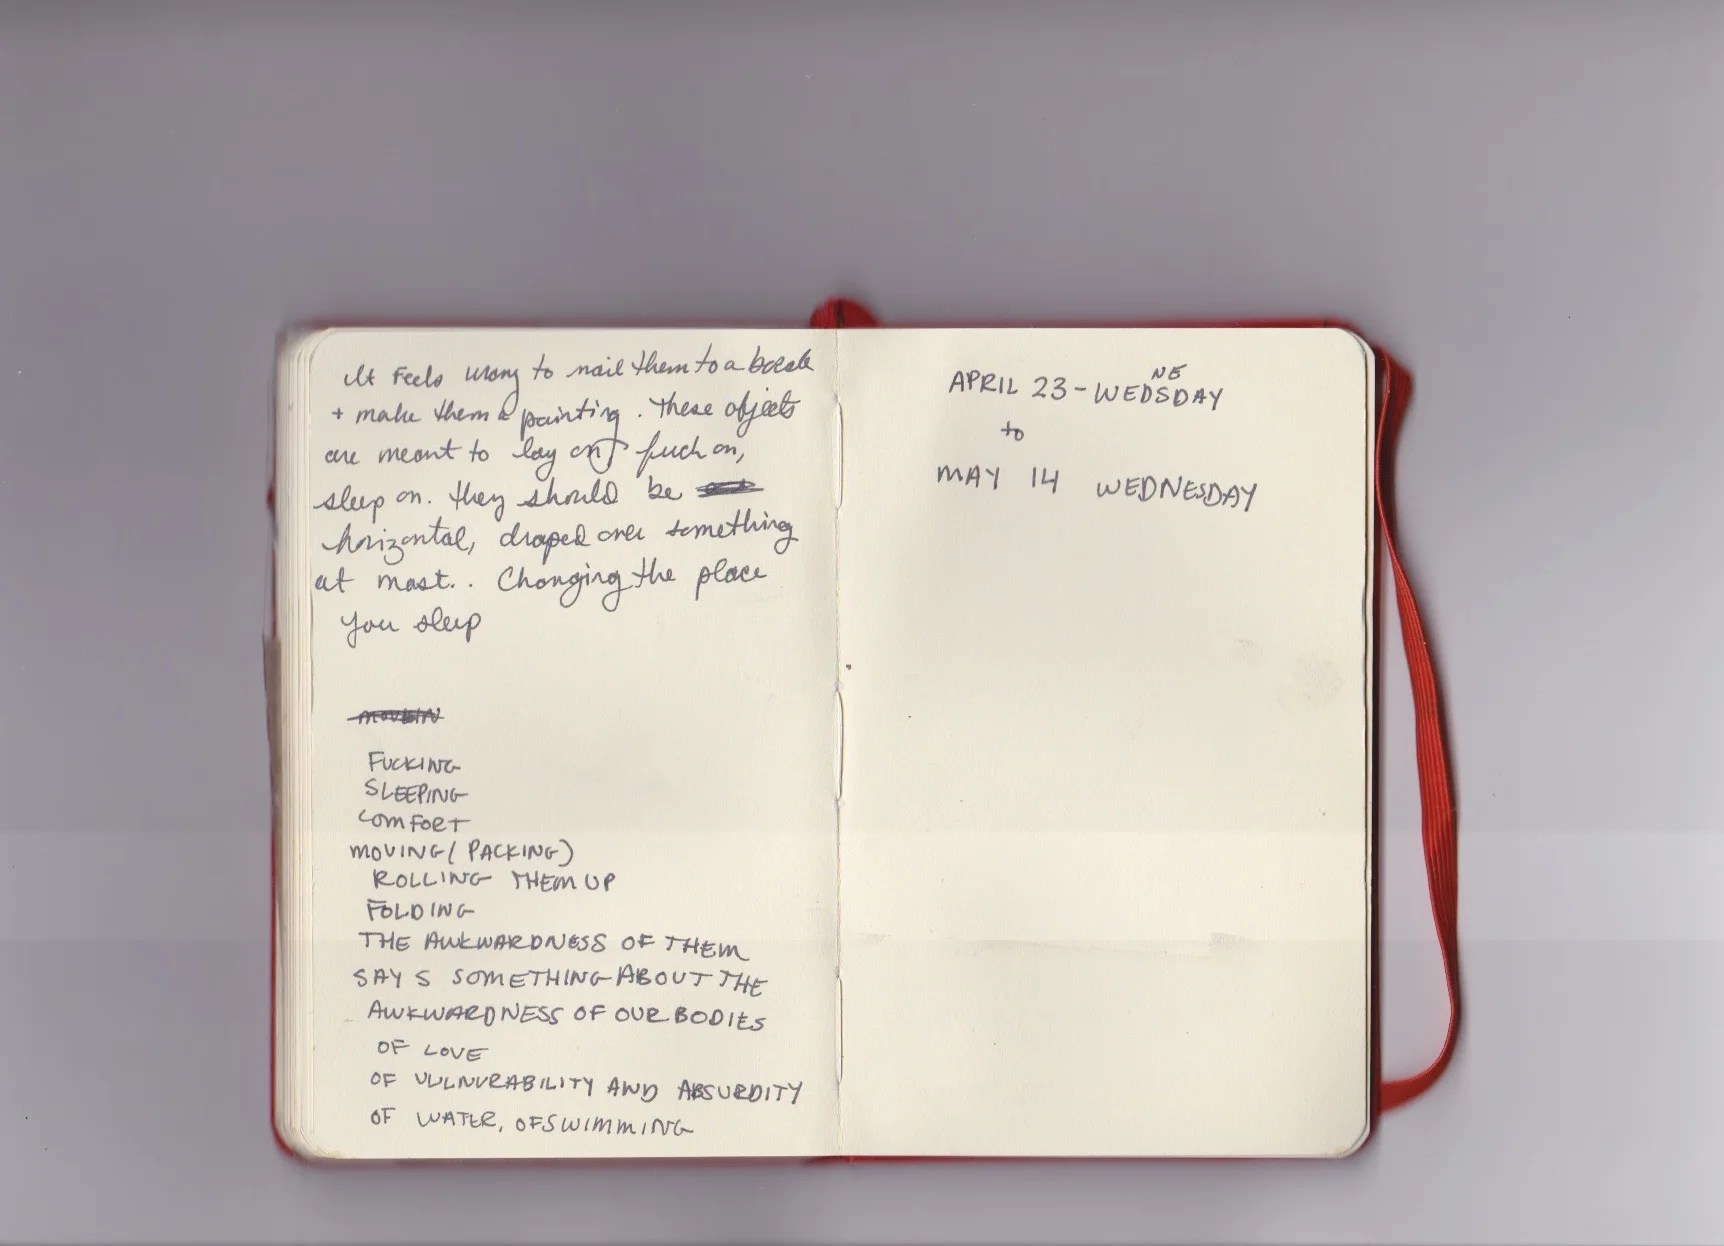 It feels wrong to nail them to a
+ make them a painting. These objects
are meant to lay on, fuck on,
sleep on. they should be
horizontal, draped over something
at most.. Changing the place
you sleep
FUCKING
SLEEPING
COMFORT
MOVING (PACKING)
ROLLING THEM UP
FOLDING
THE AWKWARDNESS OF THEM
SAYS SOMETHING ABOUT THE
AWKWARDNESS OF OUR BODIES
OF LOVE
OF VULNURABILITY AND ABSURDITY
OF WATER, OF SWIMMING
APRIL 23 - WEDNESDAY
to
MAY 14 WEDNESDAY